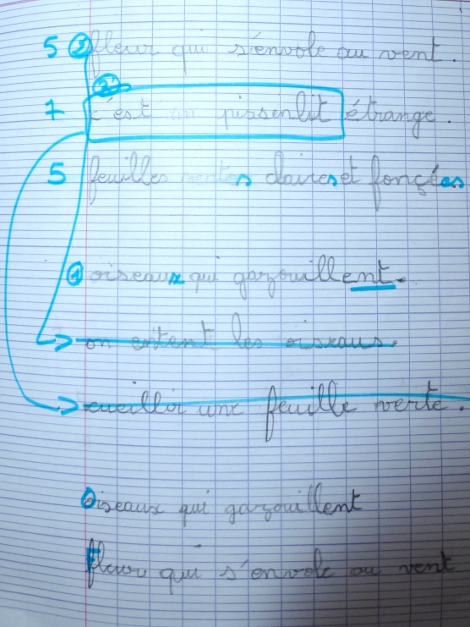 5 ② fleur qui s'envole au vent.
②
7 c'est un pissenlit étrange.
5 feuilles vertes claires et fonçées
① oiseaux qui gazouillent.
on entent les oiseaus.
cueillir une feuille verte.
Oiseaux qui gazouillent
Fleur qui s'envole au vent